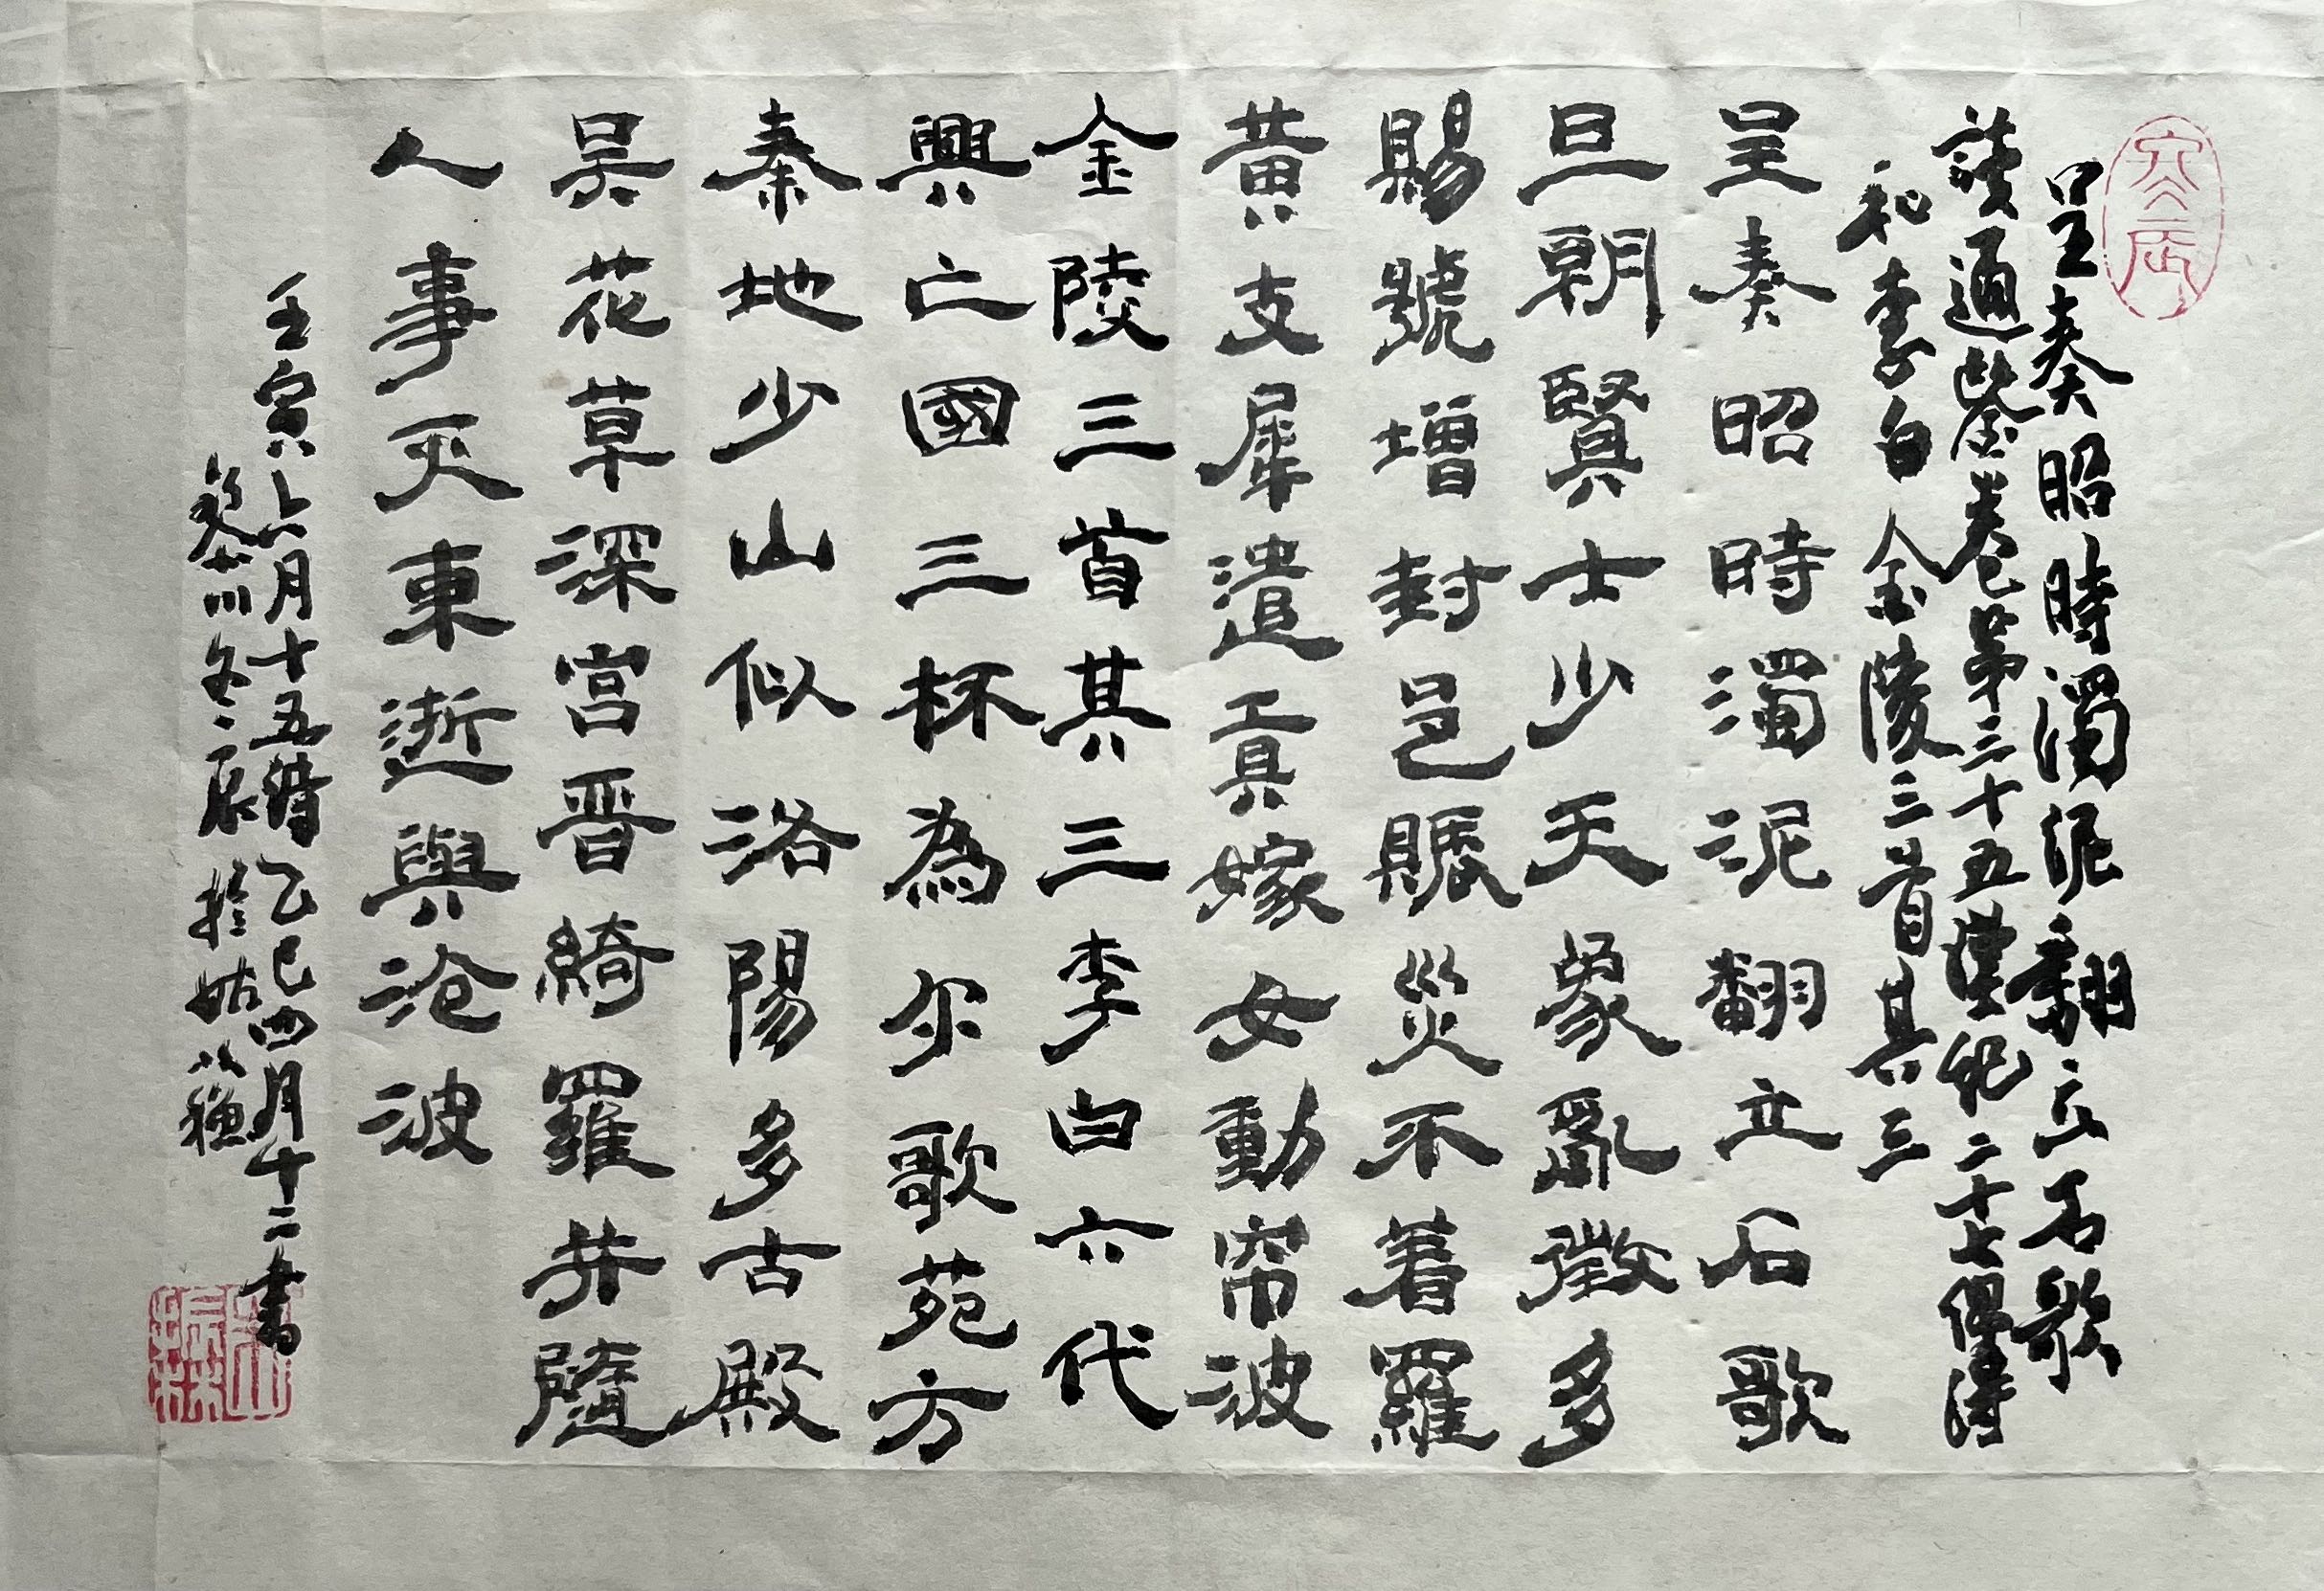 呈奏昭時濁泥翻立石歌
讀通鑒卷第三十五漢紀二十七偶得
和李白金陵三首其三
呈奏昭時濁泥翻立石歌
旦朝賢士少天象亂徵多
賜號增封邑賑災不着羅
黃支犀遣寘嫁女動帘波
金陵三首其三李白六代
興亡國三杯為尔歌苑方
秦地少山似洛陽多古殿
吴花草深宫晋綺羅并隨
人事灭東逝與沧波
壬寅六月十五得乙巳四月十二書
黎川冬辰於姑蘇